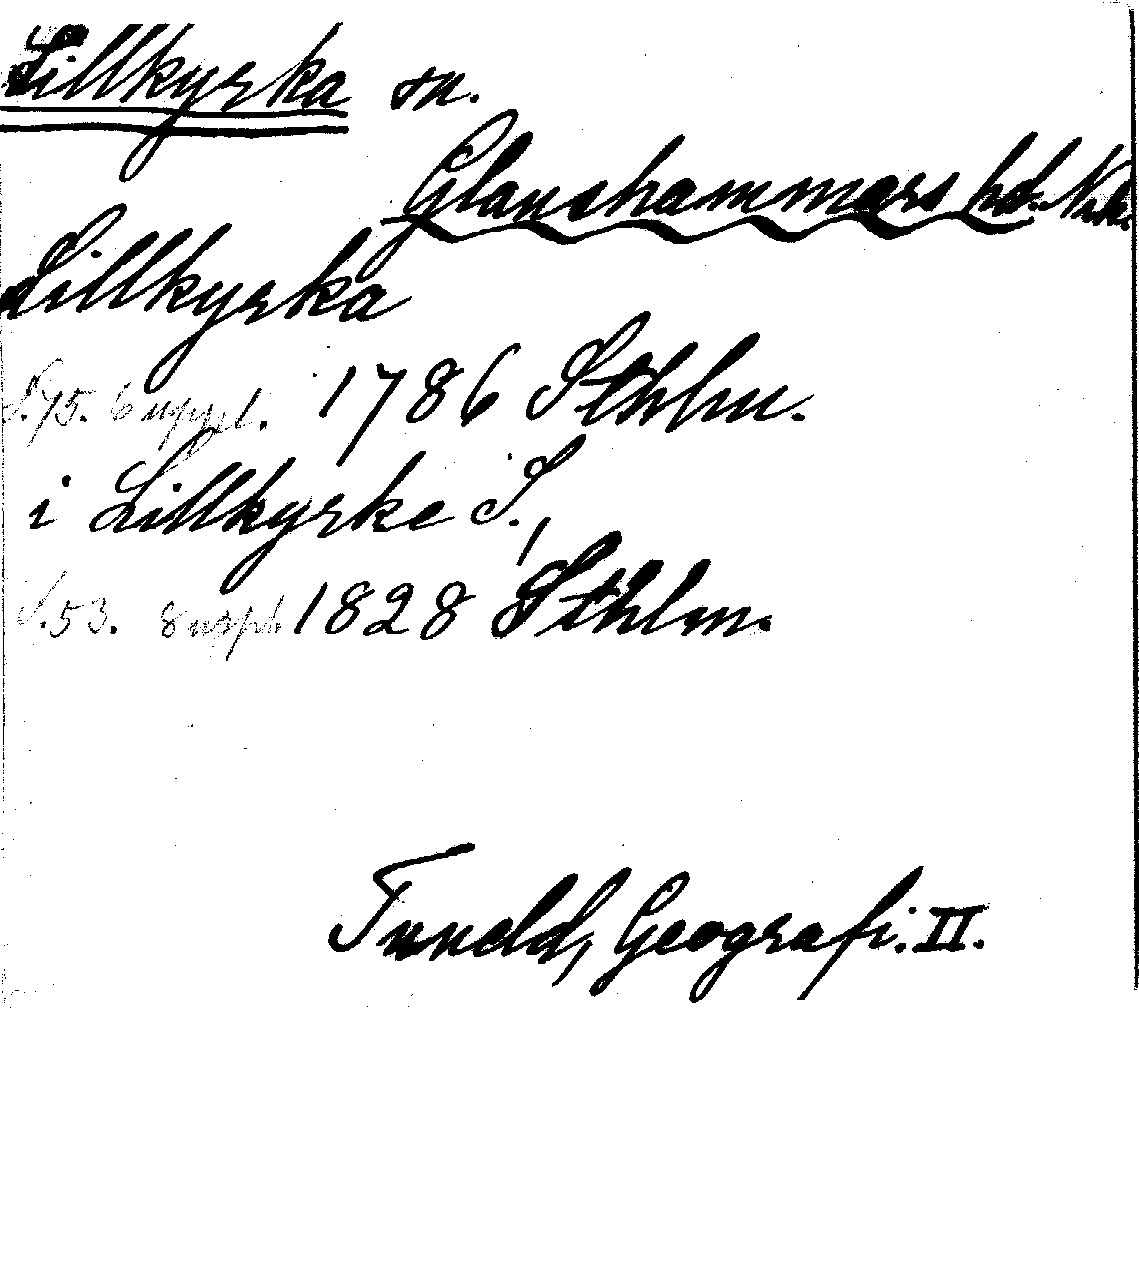 Lillkyrka sn.
Glanshammars hd. Nrk.
Lillkyrka
S. 75. 6 uppl. 1786 Sthlm.
i Lillkyrke S.,
S. 53. 8 uppl. 1828 Sthlm.
Tuneld, Geografi. II.